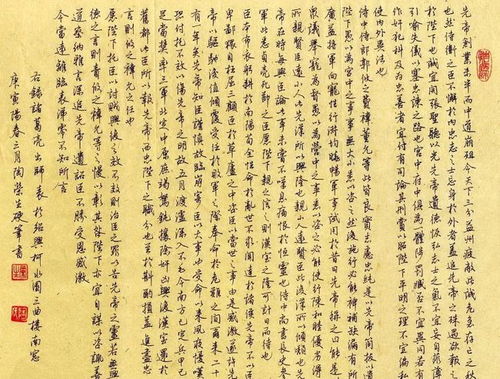 先帝創業未半而中道崩殂今天下三分益州疲敝此誠危急存亡之秋
也然侍衛之臣不懈於内忠志之士忘身於外者蓋追先帝之殊遇欲報之
於陛下也誠宜開張聖聽以光先帝遺德恢弘志士之氣不宜妄自菲薄
引喻失義以塞忠諫之路也宮中府中俱為一體陟罰臧否不宜異同若有
作奸犯科及為忠善者宜付有司論其刑賞以昭陛下平明之理不宜偏私
使内外異法也
侍中侍郎郭攸之費禕董允等此皆良實志慮忠純是以先帝簡拔以遺
陛下愚以為宮中之事事無大小悉以咨之然後施行必能裨補闕漏有所
廣益將軍向寵性行淑均曉暢軍事試用於昔日先帝稱之曰能是以
衆議舉寵為督愚以為營中之事悉以咨之必能使行陣和睦優劣得
所親賢臣遠小人此先漢所以興隆也親小人遠賢臣此後漢所以傾頹也先
帝在時每與臣論此事未嘗不嘆息痛恨於桓靈也侍中尚書長史參
軍此悉貞亮死節之臣願陛下親之信之則漢室之隆可計日而待也
臣本布衣躬耕於南陽苟全性命於亂世不求聞達於諸侯先帝不以臣
卑鄙猥自枉屈三顧臣於草廬之中咨臣以當世之事由是感激遂許先
帝以驅馳後值傾覆受任於敗軍之際奉命於危難之間爾來二十
有一年矣先帝知臣謹慎故臨崩寄臣以大事也受命以來夙夜憂嘆
恐付托不效以傷先帝之明故五月渡瀘深入不毛今南方已定兵甲已
足當獎率三軍北定中原庶竭駑鈍攘除奸凶興復漢室還於
舊都此臣所以報先帝而忠陛下之職分也至於斟酌損益進盡忠
言則攸之禕允之任也
願陛下托臣以討賊興復之效不效則治臣之罪以告先帝之靈若無興
德之言則責攸之禕允等之慢以彰其咎陛下亦宜自謀以咨諏善
道察納雅言深追先帝遺詔臣不勝受恩感激
今當遠離臨表涕零不知所言
右錄諸葛亮出師表於紹興柯水園三曲樓南窗
庚寅陽春三月陶瑩生硬筆書